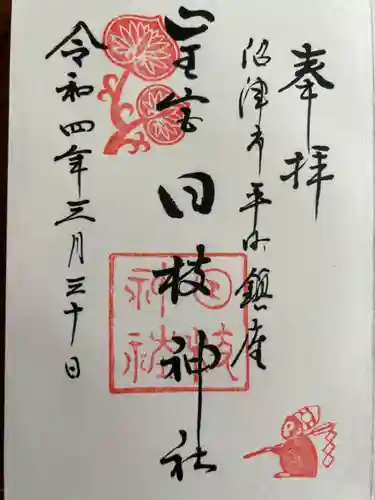 奉拝
沼津市平町鎮座
山王宮 日枝神社
日枝
神社
令和四年三月三十日